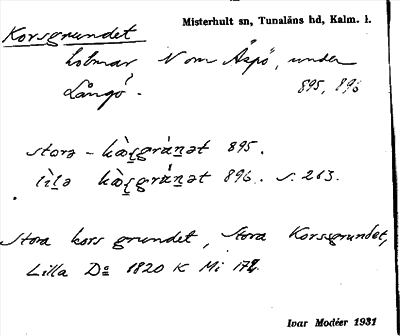 Misterhult sn, Tunaläns hd, Kalm. l.
Korsgrundet
holmar N om Äspö, under
Långö. 895, 896
storə - kàʂgrúnət 895.
lìlə kàʂgrúnət 896. s. 213.
Stora kors grundet, Stora Korsgrundet,
Lilla Do 1820 K Mi
Ivar Modéer 1931